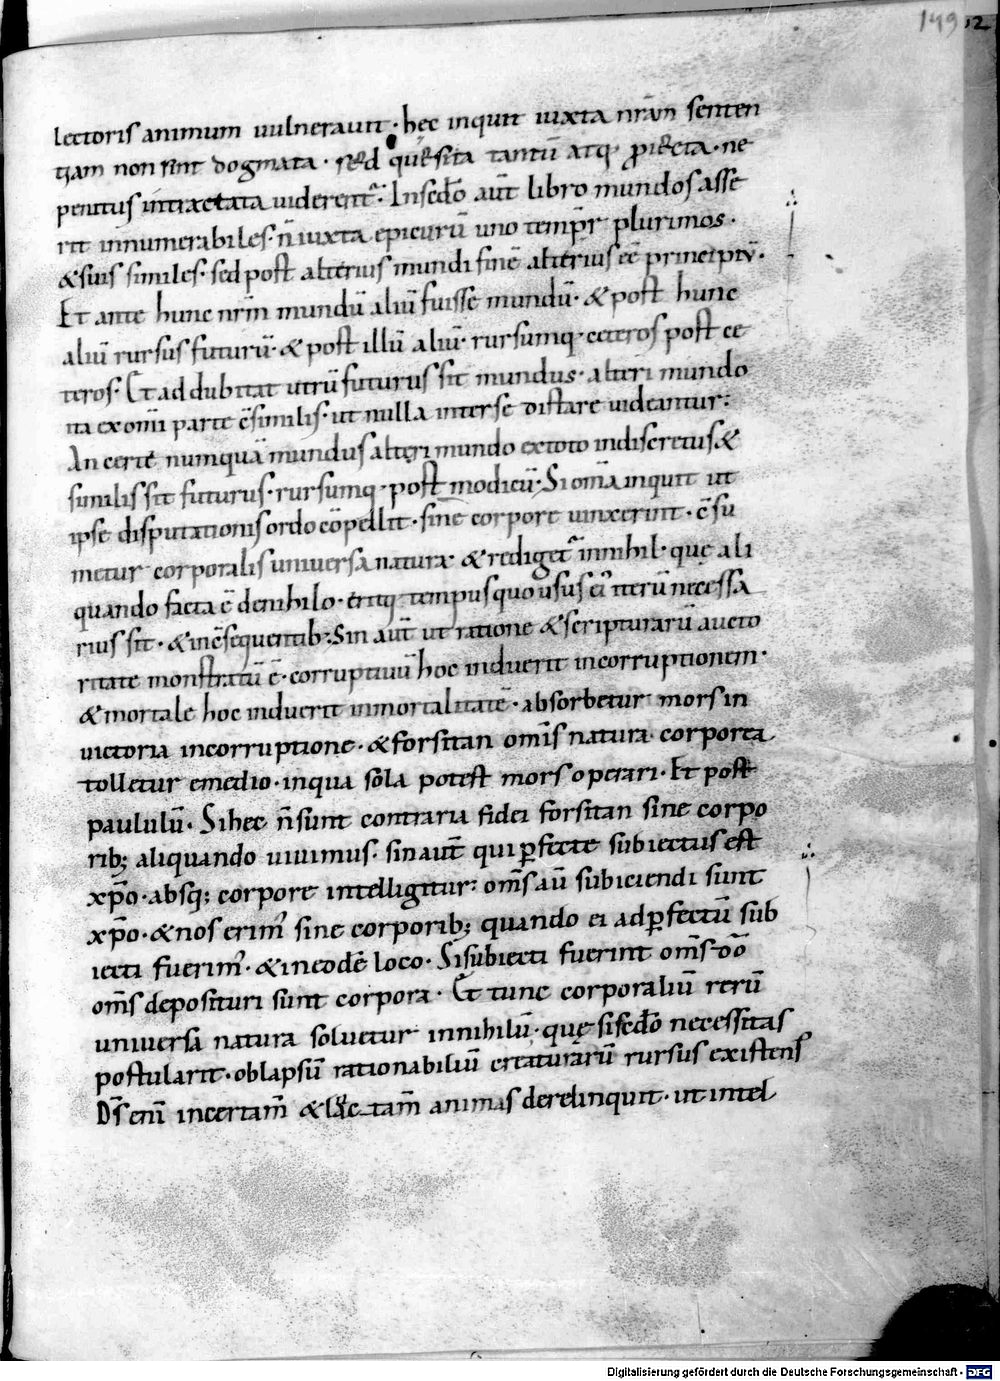 149 12
lectoris animum uulnerauit · hęc inquit iuxta nr̄am senten
tiam non sint dogmata · sed quęsita tantū atq· ꝓiecta · ne
penitus intractata uiderent᷑: In sec̄do aut̄ libro mundos asse
rit innumerabiles · n̄ iuxta epicurū uno temp̄r plurimos ·
& suis similes · sed post alterius mundi finē alterius eē principiū ·
Et ante hunc nr̄m mundū aliū fuisse mundū · & post hunc
aliū rursus futurū · & post illū aliū · rursumq· ceteros post ce
teros · Et addubitat utrū futurus sit mundus · alteri mundo
ita ex om̄i parte c̄similis · ut nulla inter se distare uideantur:
An certe numquā mundus alteri mundo ex toto indiscretus &
similis sit futurus · rursumq· post modicū · Si om̄a inquit ut
ipse disputationis ordo cōpellit · sine corpore uixerint · c̄su
metur corporalis uniuersa natura · & rediget᷑ in nihil · quę ali
quando facta ē de nihilo · eritq· tempus quo usus ei' iterū necessa
rius sit · & in c̄sequentib: Sin aut̄ ut ratione & scripturarū aucto
ritate monstratū ē · corruptiuū hoc induerit incorruptionem ·
& mortale hoc induerit inmortalitatē · absorbetur mors in
uictoria incorruptione · & forsitan om̄is natura corporea
tolletur e medio · in qua sola potest mors operari · Et post
paululū · Si hęc n̄ sunt contraria fidei forsitan sine corpo
rib; aliquando uiuimus · sin aut̄ qui ꝑfecte subiectus est
xp̄o · absq; corpore intelligitur: om̄s aū subiciendi sunt
xp̄o · & nos erim' sine corporib; quando ei ad ꝑfectū sub
iecti fuerim' · & in eodē loco · Si subiecti fuerint om̄s d̄o
om̄s deposituri sunt corpora · Et tunc corporaliū rerū
uniuersa natura soluetur in nihilū · quę si sec̄do necessitas
postularit · ob lapsū rationabiliū creaturarū rursus existens
D̄s enī in certam̄ & luctam̄ animas derelinquit · ut intel
Digitalisierung gefördert durch die Deutsche Forschungsgemeinschaft - DFG